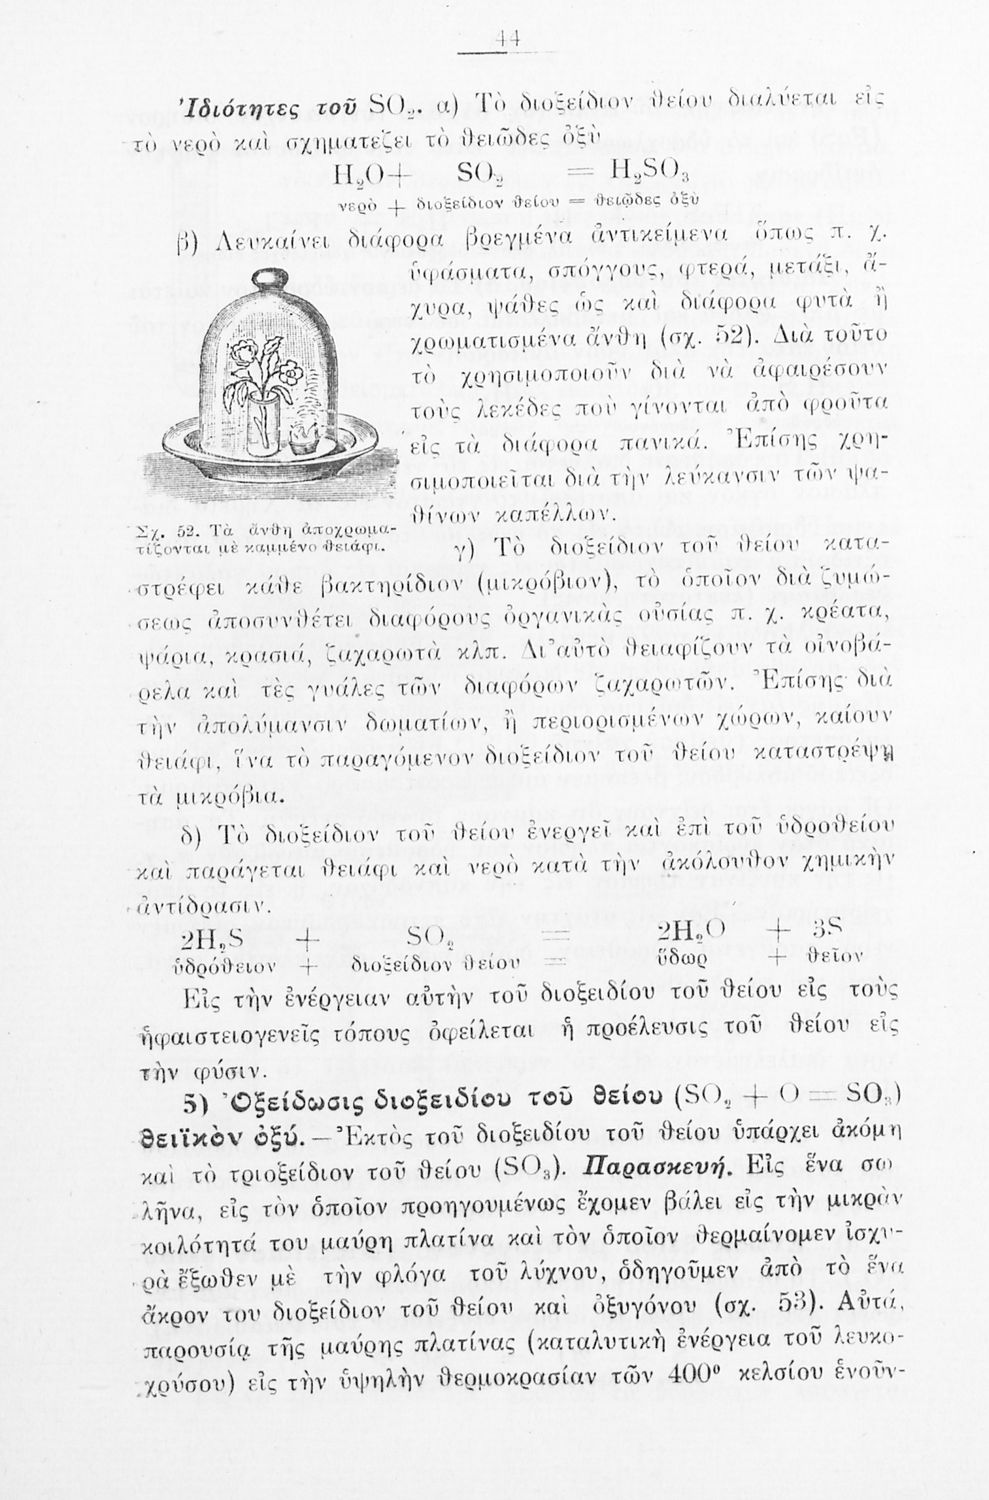 44
Ἰδιότητες τοῦ SO₂. α) Τὸ διοξείδιον θείου διαλύεται εἰς
τὸ νερὸ καὶ σχηματεζει τὸ θειῶδες ὀξὺ
H₂O + SO₂ = H₂SO₃
νερὸ + διοξείδιον θείου = θειῶδες ὀξὺ
β) Λευκαίνει διάφορα βρεγμένα ἀντικείμενα ὅπως π. χ.
ὑφάσματα, σπόγγους, φτερά, μετάξι, ἄ-
χυρα, ψάθες ὡς καὶ διάφορα φυτὰ ἢ
χρωματισμένα ἄνθη (σχ. 52). Διὰ τοῦτο
τὸ χρησιμοποιοῦν διὰ νὰ ἀφαιρέσουν
τοὺς λεκέδες ποὺ γίνονται ἀπὸ φροῦτα
εἰς τὰ διάφορα πανικά. Ἐπίσης χρη-
σιμοποιεῖται διὰ τὴν λεύκανσιν τῶν ψα-
θίνων καπέλλων.
Σχ. 52. Τὰ ἄνθη ἀποχρωμα-
τίζονται μὲ καμμένο θειάφι.
γ) Τὸ διοξείδιον τοῦ θείου κατα-
στρέφει κάθε βακτηρίδιον (μικρόβιον), τὸ ὁποῖον διὰ ζυμώ-
σεως ἀποσυνθέτει διαφόρους ὀργανικὰς οὐσίας π. χ. κρέατα,
ψάρια, κρασιά, ζαχαρωτὰ κλπ. Δι᾽ αὐτὸ θειαφίζουν τὰ οἰνοβά-
ρελα καὶ τὲς γυάλες τῶν διαφόρων ζαχαρωτῶν. Ἐπίσης διὰ
τὴν ἀπολύμανσιν δωματίων, ἢ περιορισμένων χώρων, καίουν
θειάφι, ἵνα τὸ παραγόμενον διοξείδιον τοῦ θείου καταστρέψῃ
τὰ μικρόβια.
δ) Τὸ διοξείδιον τοῦ θείου ἐνεργεῖ καὶ ἐπὶ τοῦ ὑδροθείου
καὶ παράγεται θειάφι καὶ νερὸ κατὰ τὴν ἀκόλουθον χημικὴν
ἀντίδρασιν.
2H₂S + SO₂ = 2H₂O + 3S
ὑδρόθειον + διοξείδιον θείου = ὕδωρ + θεῖον
Εἰς τὴν ἐνέργειαν αὐτὴν τοῦ διοξειδίου τοῦ θείου εἰς τοὺς
ἡφαιστειογενεῖς τόπους ὀφείλεται ἡ προέλευσις τοῦ θείου εἰς
τὴν φύσιν.
5) Ὀξείδωσις διοξειδίου τοῦ θείου (SO₂ + O = SO₃)
θειϊκὸν ὀξύ. — Ἐκτὸς τοῦ διοξειδίου τοῦ θείου ὑπάρχει ἀκόμη
καὶ τὸ τριοξείδιον τοῦ θείου (SO₃). Παρασκευή. Εἰς ἕνα σω
λῆνα, εἰς τὸν ὁποῖον προηγουμένως ἔχομεν βάλει εἰς τὴν μικρὰν
κοιλότητά του μαύρη πλατίνα καὶ τὸν ὁποῖον θερμαίνομεν ἰσχυ-
ρὰ ἔξωθεν μὲ τὴν φλόγα τοῦ λύχνου, ὁδηγοῦμεν ἀπὸ τὸ ἕνα
ἄκρον του διοξείδιον τοῦ θείου καὶ ὀξυγόνου (σχ. 53). Αὐτά,
παρουσίᾳ τῆς μαύρης πλατίνας (καταλυτικὴ ἐνέργεια τοῦ λευκο-
χρύσου) εἰς τὴν ὑψηλὴν θερμοκρασίαν τῶν 400° κελσίου ἑνοῦν-